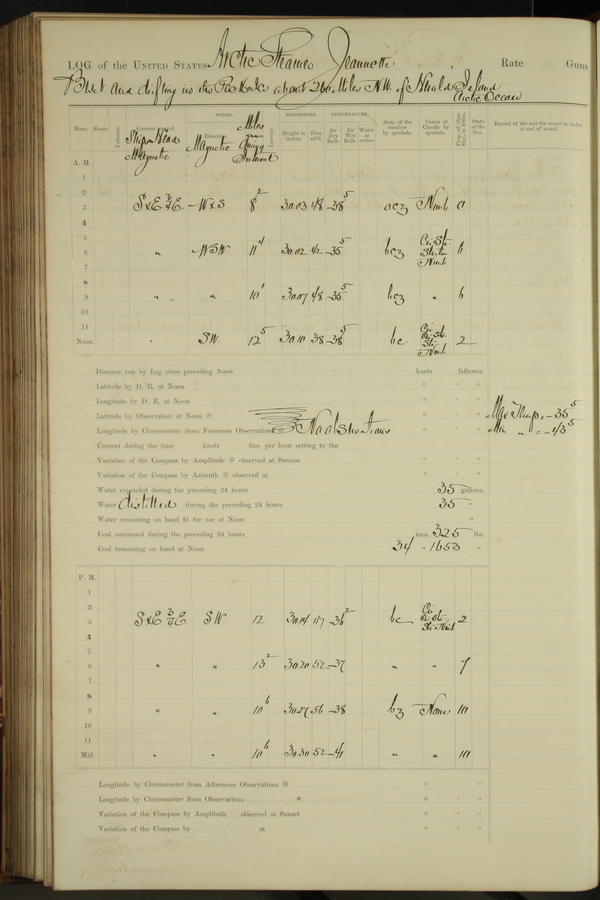 LOG of the UNITED STATES Arctic Steamer Jeannette, Rate Guns
Beset and drifting in the Pack Ice about 210 Miles N.W. of Herald Island
Arctic Ocean
WINDS. BAROMETER. TEMPERATURE.
Hour. Knots. Fathoms. Courses steered. Ship's Head Magnetic Direction Magnetic Miles per hour Leeway. Height in inches. Ther. att'd. Air Dry Bulb. Air Wet Bulb. Water at surface. State of the weather by symbols. Forms of Clouds by symbols. Prop. of clear Sky, in 10ths. State of the Sea. Record of the sail the vessel is under at end of watch.
A. M.
1
2
3 SxE ¾E. W x S 8² 30.03 48 -38⁵ ocz Nimb 0
4
5
6 " WSW 11⁴ 30.02 42 -35⁵ bcz Cir. Str. Nimb 6
7
8
9 " " 10¹ 30.07 48 -35⁵ bcz " 6
10
11
Noon. " SW. 12⁵ 30.10 38 -38⁵ bc Cir Cir. St. Str. Nimb 2
Distance run by Log since preceding Noon knots fathoms.
Latitude by D. R. at Noon
Longitude by D. R. at Noon
Latitude by Observation at Noon Max Temp. = -35⁵
Longitude by Chronometer from Forenoon Observations No observations Min " = -43⁵
Current during the time knots fms. per hour setting to the
Variation of the Compass by Amplitude observed at Sunrise
Variation of the Compass by Azimuth observed at
Water expended during the preceding 24 hours 35 gallons.
Water distilled during the preceding 24 hours 35 "
Water remaining on hand fit for use at Noon "
Coal consumed during the preceding 24 hours tons. 325 lbs.
Coal remaining on hand at Noon 34 " 1653 "
P. M.
1
2
3 SxE ¾E SW. 12 30.14 47 -36² bc Cir Cir. St. Str. Nimb 2
4
5
6 " " 13² 30.20 52 -37 " " 7
7
8
9 " " 10⁶ 30.27 56 -38 bz None 10
10
11
Mid. " " 10⁶ 30.30 52 -41 " " 10
Longitude by Chronometer from Afternoon Observations
Longitude by Chronometer from Observations
Variation of the Compass by Amplitude observed at Sunset
Variation of the Compass by at